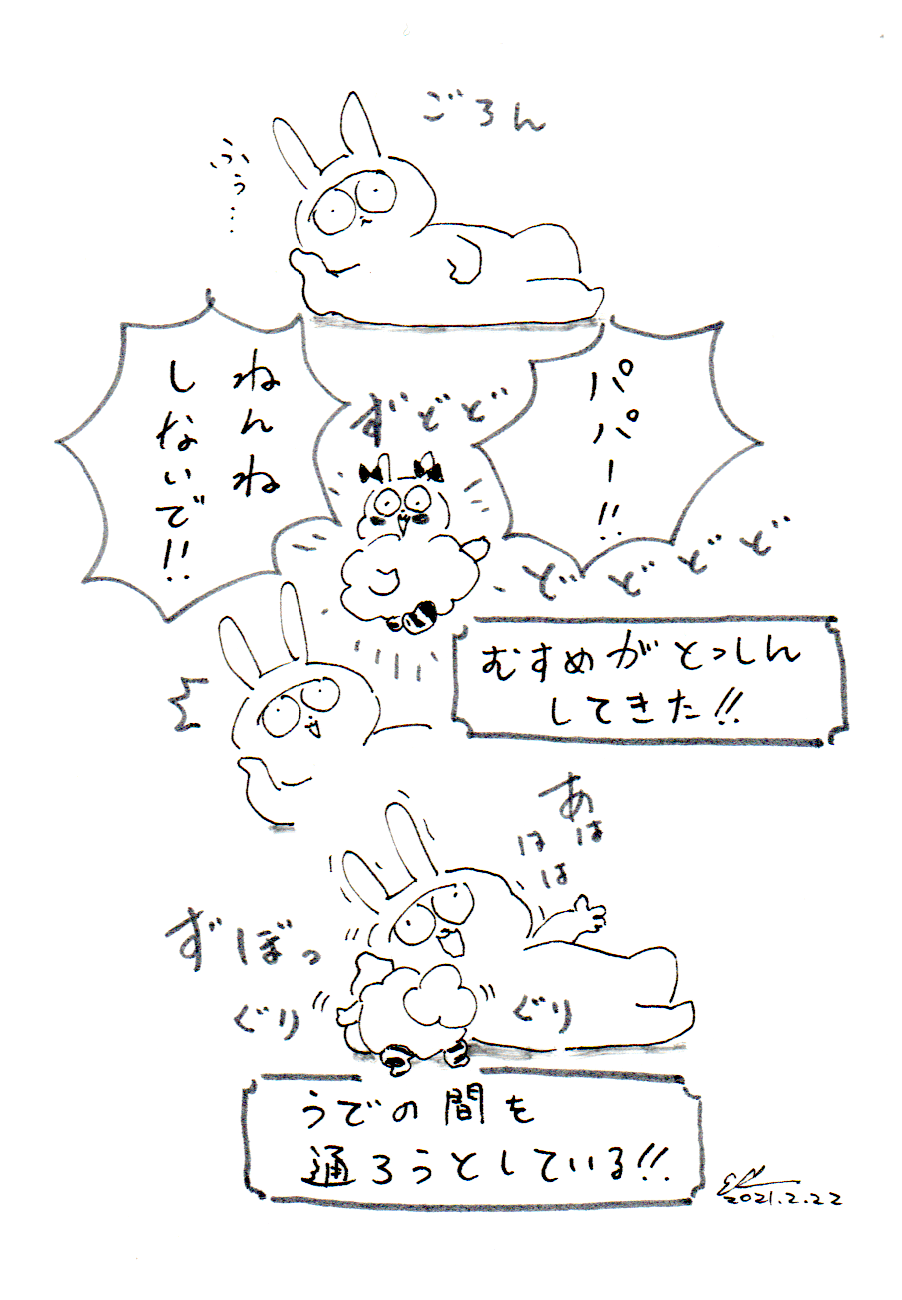 ごろん
ふぅ…
パパー!!
ねんね
しないで!!
ずどど
どどどど
むすめがとっしん
してきた!!
あは
はは
ずぼっ
ぐり
ぐり
うでの間を
通ろうとしている!!
2021.2.22